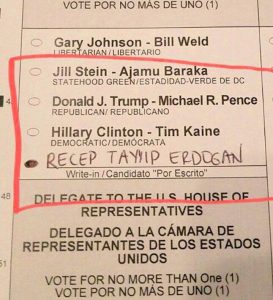 VOTE FOR NO MORE THAN ONE (1)
VOTE POR NO MÁS DE UNO (1)
Gary Johnson - Bill Weld
LIBERTARIAN / LIBERTARIO
Jill Stein - Ajamu Baraka
STATEHOOD GREEN/ESTADIDAD-VERDE DE DC
Donald J. Trump - Michael R. Pence
REPUBLICAN/ REPUBLICANO
Hillary Clinton - Tim Kaine
DEMOCRATIC/ DEMÓCRATA
RECEP TAYYIP ERDOGAN
Write-in / Candidato "Por Escrito"
48
DELEGATE TO THE U.S. HOUSE OF
REPRESENTATIVES
DELEGADO A LA CÁMARA DE
REPRESENTANTES DE LOS ESTADOS
51
UNIDOS
VOTE FOR NO MORE THAN One (1)
VOTE POR NO MÁS DE UNO (1)